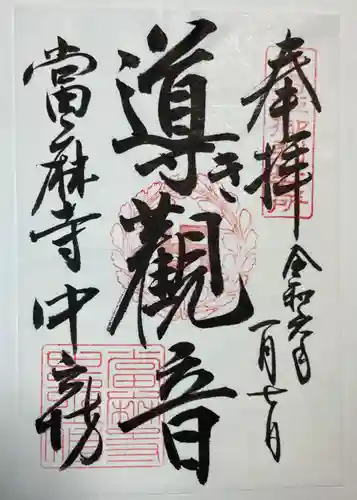 奉拝
令和六年
一月七日
導き觀音
當麻寺 中之坊